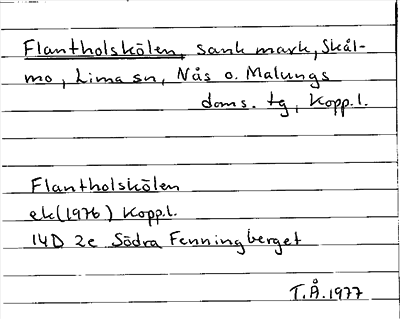 Flantholskölen, sank mark, Skål-
mo, Lima sn, Nås o. Malungs
doms. tg, Kopp.l.
Flantholskölen
ek(1976) Kopp.l.
14D 2e Södra Fenningberget
T.Å.1977